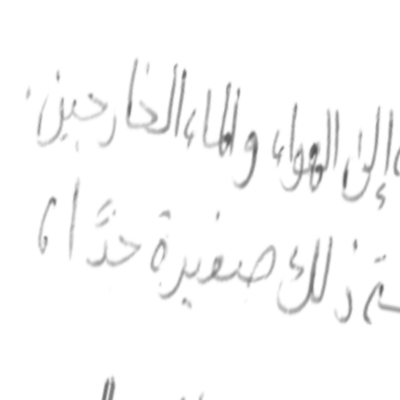 إلى الهواء والماء الخارجين.
ذلك صغيرة جدًّا